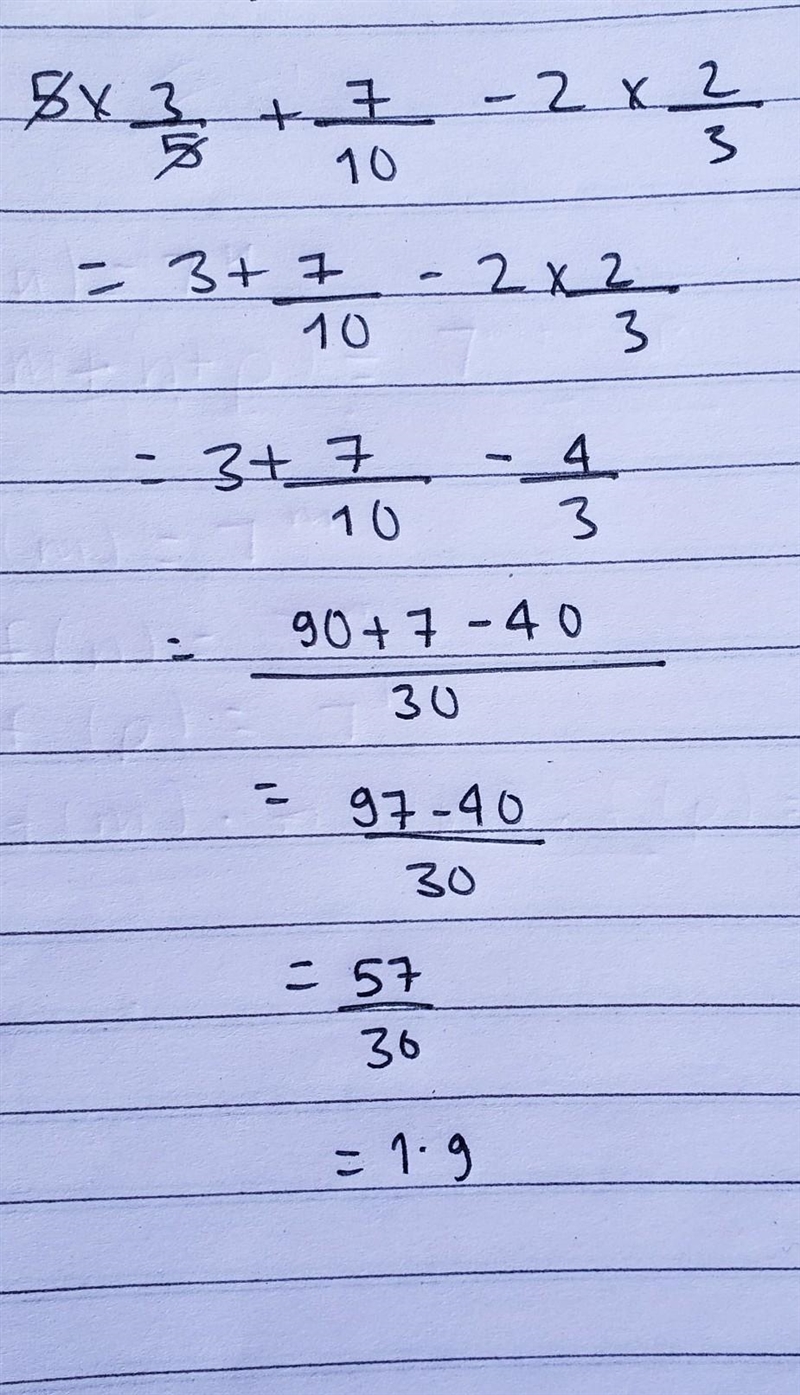 5 × 3/5 + 7/10 - 2 × 2/3
= 3 + 7/10 - 2 × 2/3
= 3 + 7/10 - 4/3
= 90 + 7 - 40/30
= 97 - 40/30
= 57/30
= 1·9